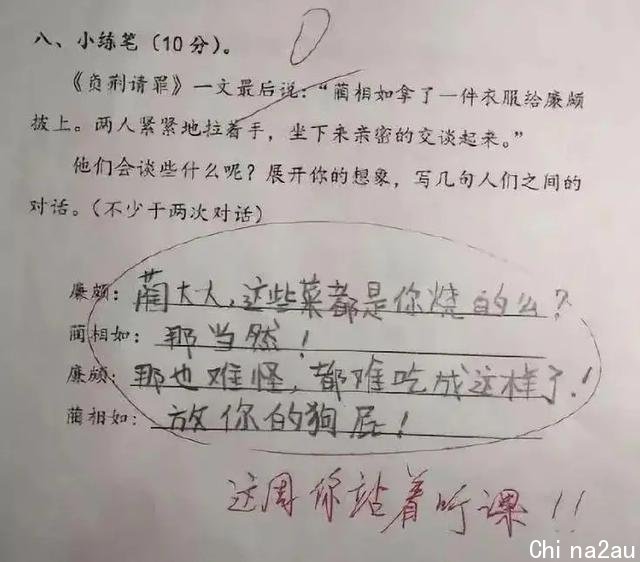 八、小练笔(10分)。
0
《负荆请罪》一文最后说:“蔺相如拿了一件衣服给廉颇
披上。两人紧紧地拉着手,坐下来亲密的交谈起来。”
他们会谈些什么呢?展开你的想象,写几句人们之间的
对话。(不少于两次对话)
廉颇:蔺大人,这些菜都是你烧的么?
蔺相如:那当然!
廉颇:那也难怪,都难吃成这样了!
蔺相如:放你的狗屁!
这周你站着听课!!
Chi na2au